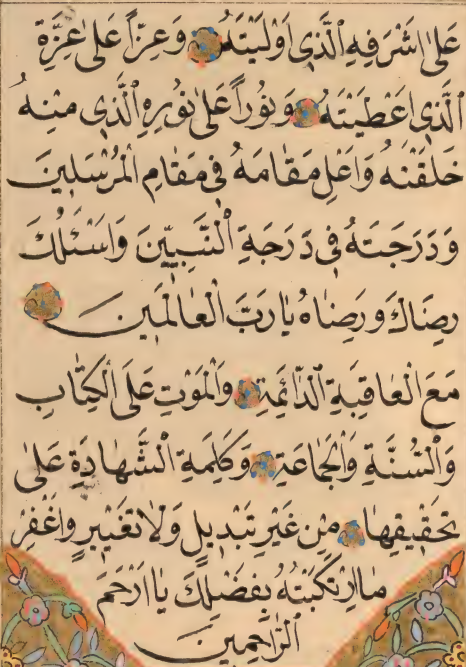 عَلىٰ اَشْرَفِهِ الَّذِي اَوْلَيْتَهُ وَعِزّاً عَلىٰ عِزَّةِ
الَّذِي اَعْطَيْتَهُ وَنُوراً عَلىٰ نُورِهِ الَّذِي مِنْهُ
خَلَقْتَهُ وَاَعْلِ مَقَامَهُ فِي مَقَامِ الْمُرْسَلِينَ
وَدَرَجَتَهُ فِي دَرَجَةِ النَّبِيِّينَ وَاَسْئَلُكَ
رِضَاكَ وَرِضَاهُ يَا رَبَّ الْعَالَمِينَ
مَعَ الْعَاقِبَةِ الدَّائِمَةِ وَالْمَوْتِ عَلَى الْكِتَابِ
وَالسُّنَّةِ وَالْجَمَاعَةِ وَكَلِمَةِ الشَّهَادَةِ عَلىٰ
تَحْقِيقِهَا مِنْ غَيْرِ تَبْدِيلٍ وَلَا تَغْيِيرٍ وَاغْفِرْ
مَا ارْتَكَبْتُهُ بِفَضْلِكَ يَا اَرْحَمَ
الرَّاحِمِينَ